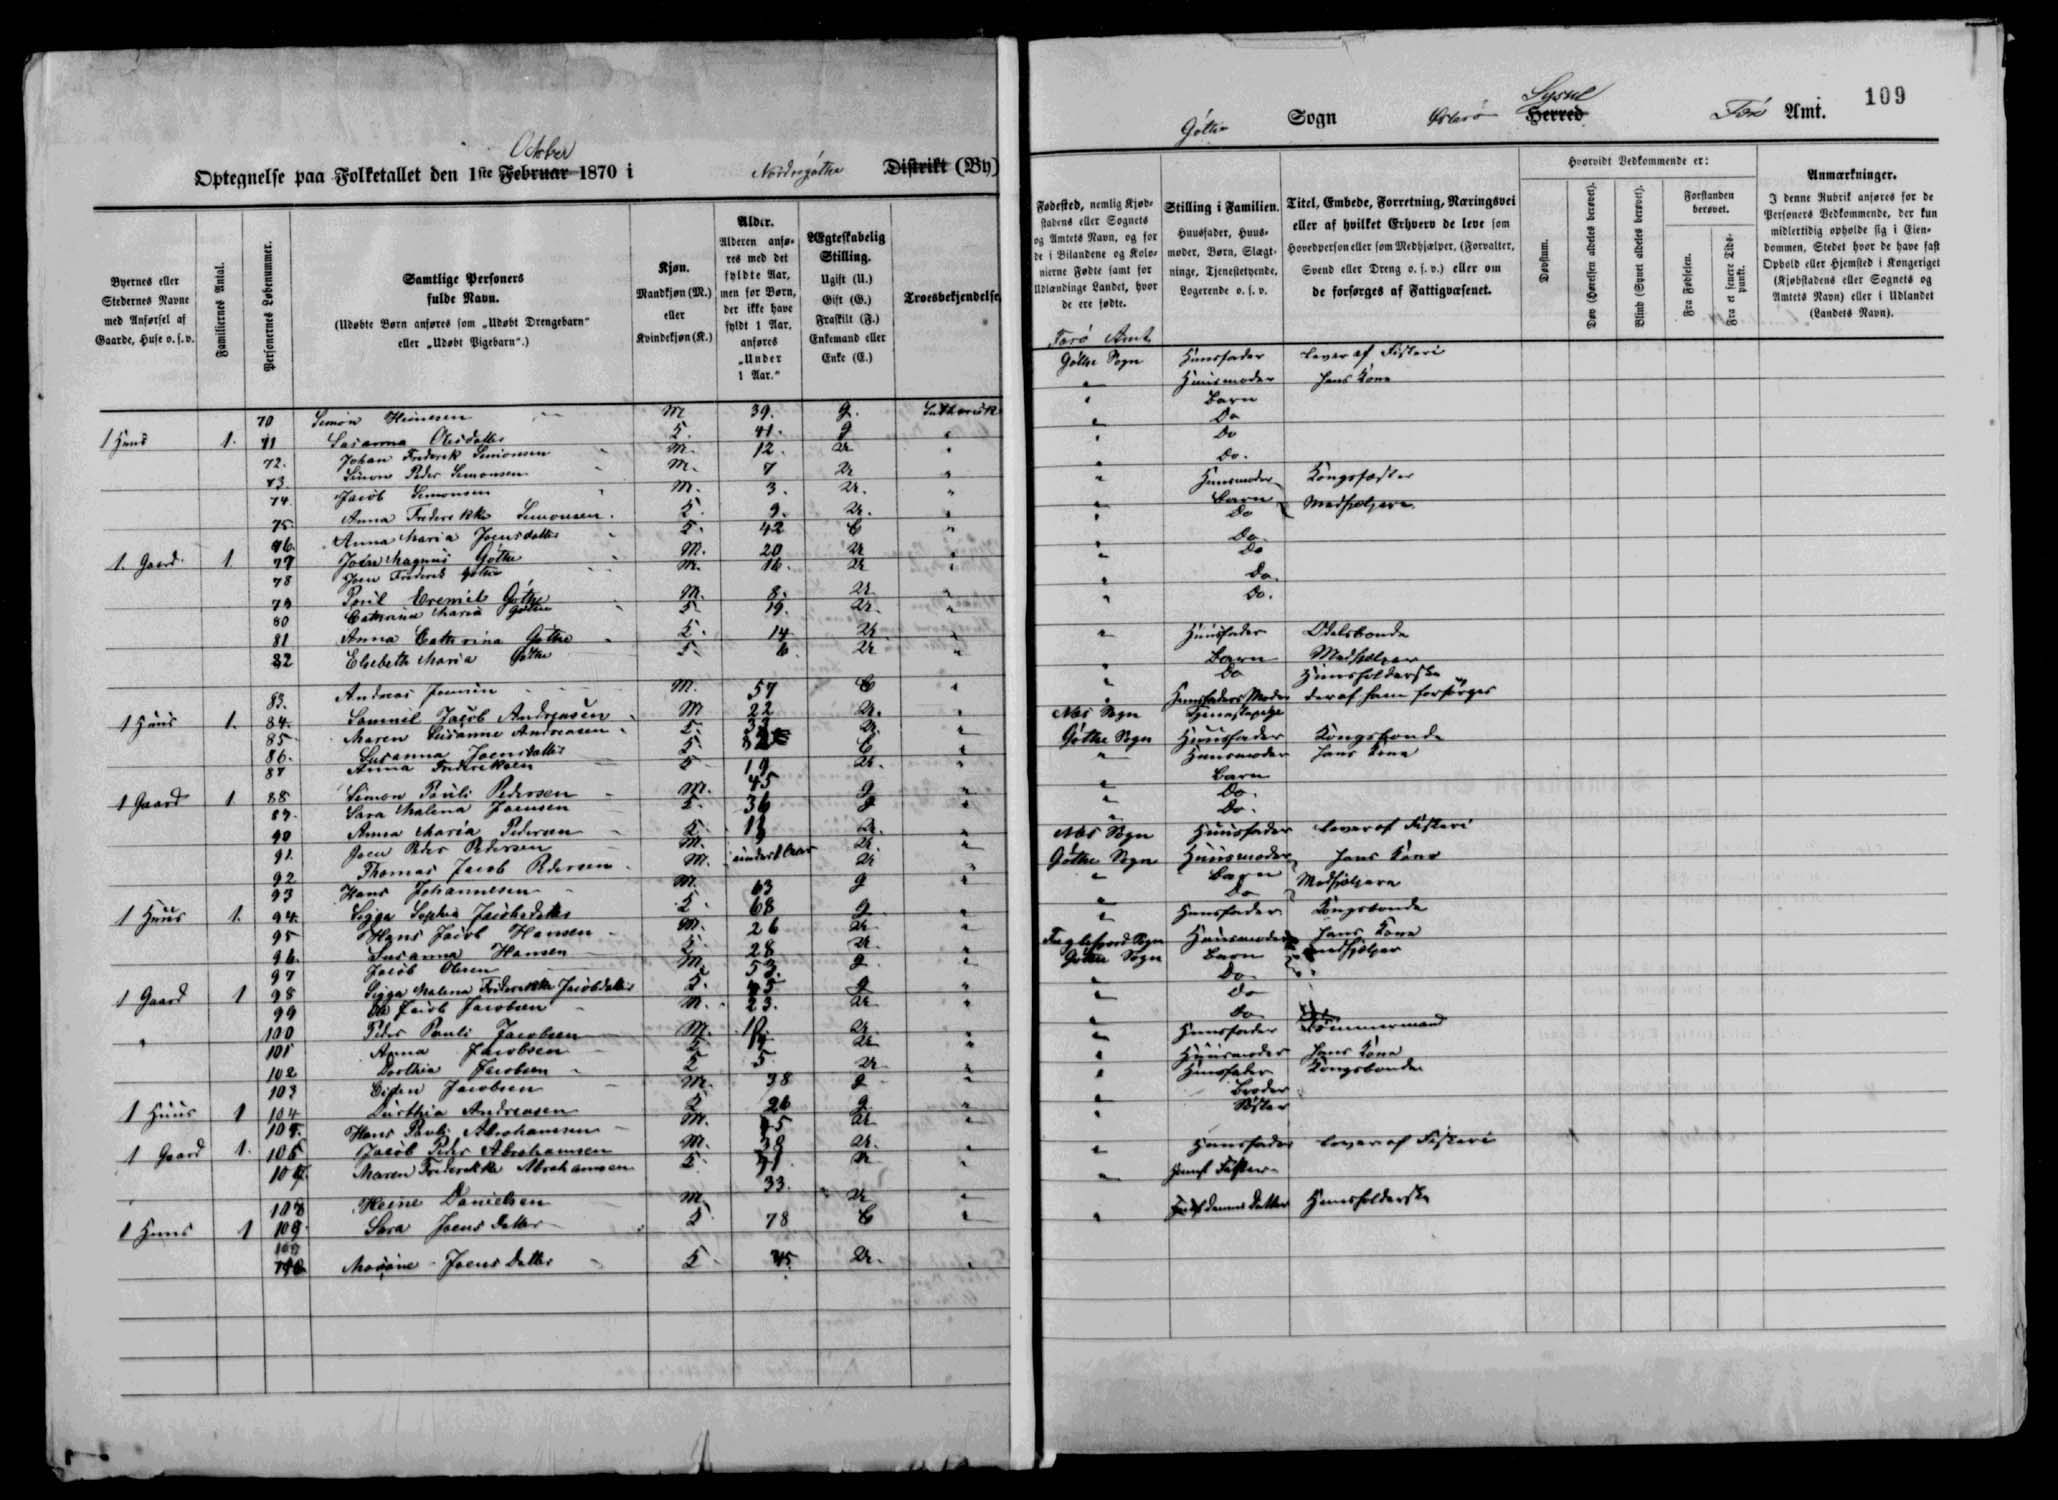 October
Optegnelse paa Folketallet den 1ste Februar 1870 i Nordregöthe Distrikt (By)
Byernes eller Stedernes Navne med Anførsel af Gaarde, Huse o. s. v.
Familiernes Antal.
Personernes Løbenummer.
Samtlige Personers fulde Navn.
(Udøbte Børn anføres som „Udøbt Drengebarn" eller „Udøbt Pigebarn".)
Kjøn.
Mandkjøn (M.) eller Kvindekjøn (K.).
Alder.
Alderen anføres med det fyldte Aar, men for Børn, der ikke have fyldt 1 Aar, anføres „Under 1 Aar."
Ægteskabelig Stilling.
Ugift (U.)
Gift (G.)
Fraskilt (F.)
Enkemand eller Enke (E.)
Troesbekjendelse
70 Simon Heinesen M 39. g. Luthersk
1 Huus 1. 71 Susanna Olesdatter K. 41. g "
72. Johan Frederik Simonsen M. 12. U "
73. Simon Peder Simonsen M. 7 U "
74. Jacob Simonsen M. 3. U. "
75. Anna Frederikke Simonsen K. 9. U. "
76. Anna Maria Joensdatter K. 42 E "
1. Gaard 1 77 Joen Magnus Göthe M. 20 U "
78 Joen Frederik Göthe M. 16. U "
79 Poul Eremit Göthe M. 8. U "
80 Cathrina Maria Göthe K 19. U. "
81 Anna Cathrina Göthe K. 14 U "
82 Elsebeth Maria Göthe K. 6 U "
83. Andreas Joensen M. 57 E "
1 Huus 1. 84. Samuel Jacob Andreasen M 22 U. "
85 Maren Susanne Andreasen K. U. "
86. Susanna Joensdatter K E "
87 Anna Frederiksen K 19 U. "
1 Gaard 1 88 Simon Pauli Pedersen M. 45 g "
89. Sara Malena Joensen K. 36 g "
90 Anna Maria Pedersen K. U. "
91. Joen Peder Pedersen M. U. "
92 Thomas Jacob Pedersen M. under 1 Aar U "
93 Hans Johannesen M. 63 g "
1 Huus 1. 94. Sigga Sophia Jacobsdatter K 68 g "
95 Hans Jacob Hansen M. 26 U "
96. Susanna Hansen K 28 U "
97 Jacob Olesen M 53. g "
1 Gaard 1 98 Sigga Malena Frederikke Jacobsdatter K. 45 g "
99 Ole Jacob Jacobsen M. 23. U "
" 100 Peder Pauli Jacobsen M. U. "
101 Anna Jacobsen K U "
102 Dorthia Jacobsen K 5 U "
103 Jacobsen M. 38 g "
1 Huus 1 104 Durthia Andreasen K 26 g "
105. Hans Pauli Abrahamsen M. U "
1 Gaard 1. 106 Jacob Peder Abrahamsen M. 38 U. "
107. Maren Frederikke Abrahamsen K U "
108 Heine Danielsen M 33. U "
1 Huus 1 109. Sara Joensdatter K 78 E "
109 110 Joensdatter K 45. U. "
109
Göthe Sogn Österö Herred Sysel Færö Amt.
Fødested, nemlig Kjøbstadens eller Sognets og Amtets Navn, og for de i Bilandene og Kolonierne Fødte samt for Udlændinge Landet, hvor de ere fødte.
Stilling i Familien.
Huusfader, Huusmoder, Børn, Slægtninge, Tjenestetyende, Logerende o. s. v.
Titel, Embede, Forretning, Næringsvei eller af hvilket Erhverv de leve som Hovedperson eller som Medhjælper, (Forvalter, Svend eller Dreng o. s. v.) eller om de forsørges af Fattigvæsenet.
Hvorvidt Vedkommende er:
Døvstum.
Døv (Hørelsen aldeles berøvet).
Blind (Synet aldeles berøvet).
Forstanden berøvet.
Fra Fødselen.
Fra et senere Tidspunkt.
Anmærkninger.
I denne Rubrik anføres for de Personers Vedkommende, der kun midlertidig opholde sig i Eiendommen, Stedet hvor de have fast Ophold eller Hjemsted i Kongeriget (Kjøbstadens eller Sognets og Amtets Navn) eller i Udlandet (Landets Navn).
Færö Amt
Göthe Sogn Huusfader lever af Fiskeri
" Huusmoder hans Kone
" Barn
" Do
" Do
" Do.
" Huusmoder Kongsfæster
" Barn Medhjelpere
" Do
" Do
" Do
" Do.
" Do.
" Huusfader Odelsbonde
" Barn Medhjelper
" Do Huusholderske
" Huusfaders Moder der af ham forsörges
Næs Sogn Tjenestepige
Göthe Sogn Huusfader Kongsbonde
" Huusmoder hans Kone
" Barn
" Do.
" Do.
Næs Sogn Huusfader lever af Fiskeri
Göthe Sogn Huusmoder hans Kone
" Barn Medhjelpere
" Do
" Huusfader Kongsbonde
Fuglefjord Sogn Huusmoder hans Kone
Göthe Sogn Barn medhjelper
" Do "
" Do
" Do
" Huusfader Tömmermand
" Huusmoder hans Kone
" Huusfader Kongsbonde
" Broder
" Söster
" Huusfader lever af Fiskeri
"
" Datter Huusholderske